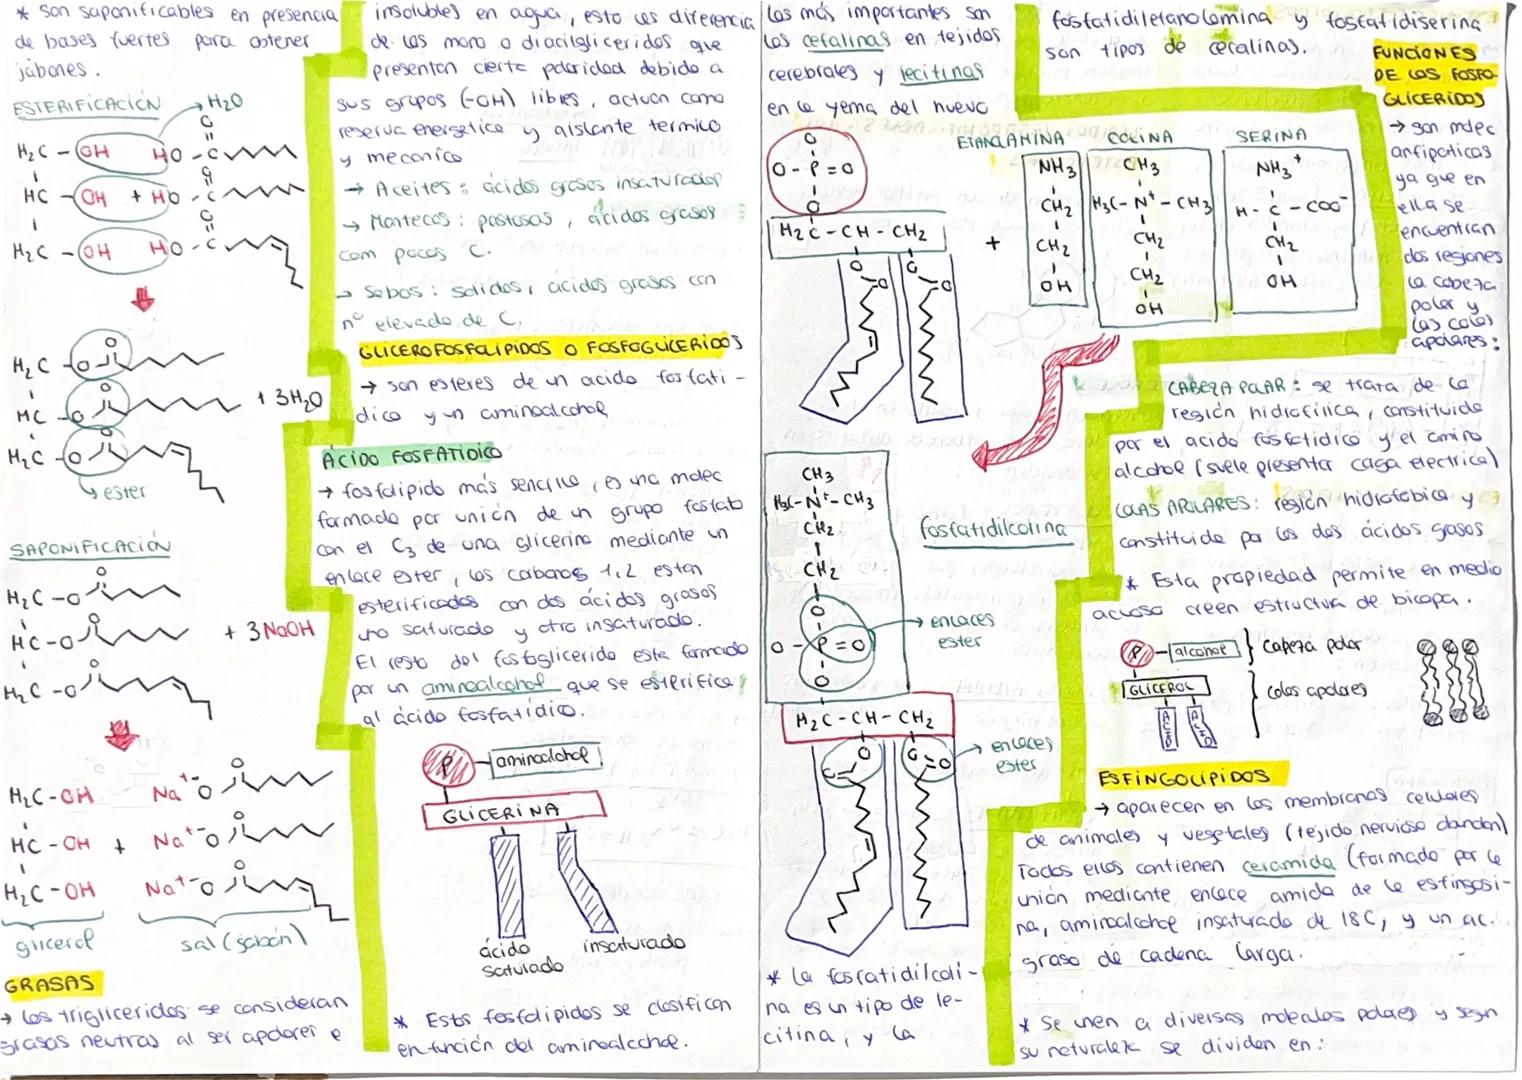 * son saponificables en presencia
de bases fuertes para obtener
jabones.
ESTERIFICACIÓN
H2O
H2C - OH HO - C
HC - OH + HO - C
H2C - OH HO - C
H2C - O
HC - O + 3H2O
H2C - O
ester
SAPONIFICACIÓN
H2C - O
HC - O + 3 NaOH
H2C - O
H2C - OH Na+ -O
HC - OH + Na+ -O
H2C - OH Na+ -O
glicerol sal (jabón)
GRASAS
→ Los trigliceridos se consideran
grasas neutras al ser apolares e
insolubles en agua, esto es diferencia
de los mono o diacilgliceridos que
presentan cierta polaridad debido a
sus grupos (-OH) libres, actuan como
reserva energetica y aislante termico
y mecanico
→ Aceites: ácidos grasos insaturados
→ Mantecas: pastosas, ácidos grasos
con pocos C.
→ Sebos: solidos, ácidos grasos con
nº elevado de C.
GLICEROFOSFOLIPIDOS O FOSFOGLICERIDOS
→ son esteres de un acido fosfati-
dico y un aminoalcohol
ÁCIDO FOSFATIDICO
→ fosfolipido más sencillo, es una molec
formada por unión de un grupo fosfato
con el C3 de una glicerina mediante un
enlace ester, los carbonos 1,2 estan
esterificados con dos ácidos grasos
uno saturado y otro insaturado.
El resto del fosfoglicerido esta formado
por un aminoalcohol que se esterifica
al ácido fosfatídico.
P aminoalcohol
GLICERINA
ácido
saturado
insaturado
* Estos fosfolipidos se clasifican
en función del aminoalcohol.
Los más importantes son
las cefalinas en tejidos
cerebrales y lecitinas
en la yema del huevo
fosfatidiletanolamina y fosfatidilserina
son tipos de cefalinas.
O
O - P = O
O
H2C - CH - CH2
+
ETANOLAMINA
NH3
CH2
CH2
OH
COLINA
CH3
H3C - N+ - CH3
CH2
CH2
OH
SERINA
NH3+
H - C - COO-
CH2
OH
CH3
H3C - N+ - CH3
CH2
CH2
O
O - P = O
O
H2C - CH - CH2
fosfatidilcolina
enlaces
ester
enlaces
ester
* La fosfatidilcoli-
na es un tipo de le-
citina, y la
FUNCIONES
DE LOS FOSFO-
GLICERIDOS
→ son molec
anfipaticas
ya que en
ella se
encuentran
dos regiones
la cabeza
polar y
las colas
apolares:
CABEZA POLAR: se trata de la
región hidrofilica, constituida
por el acido fosfatidico y el amino
alcohol (suele presentar carga electrica)
COLAS APOLARES: región hidrofobica y
constituida por los dos ácidos grasos
* Esta propiedad permite en medio
acuoso creen estructura de bicapa.
P - alcohol } Cabeza polar
GLICEROL
ACID ACID } colas apolares
ESFINGOLIPIDOS
→ aparecen en las membranas celulares
de animales y vegetales (tejido nervioso abundan)
Todos ellos contienen ceramida (formado por la
unión mediante enlace amida de la esfingosi-
na, aminoalcohol insaturado de 18C, y un ac.
graso de cadena larga.
* Se unen a diversas moleculas polares y segun
su naturaleza se dividen en: